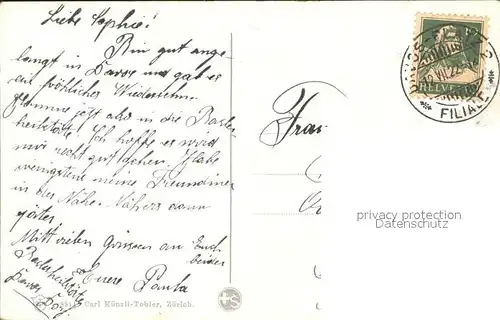 Liebe Sophie!
Bin gut ange-
langt in Davos und gab es
ein fröhliches Wiedersehn.
komme jetzt also in die Basler-
heilstätte. Ich hoffe es wird
mir recht gut gehen. Habe
wenigstens meine Freundinnen
in der Nähe. Näheres dann
später.
Mit vielen Grüssen an Euch
beiden
Eure Paula
Baslerheilstätte
Davos Dorf
Carl Künzli-Tobler, Zürich.
Frau
HELVETIA
DAVOS
FILIALE
privacy protection
Datenschutz